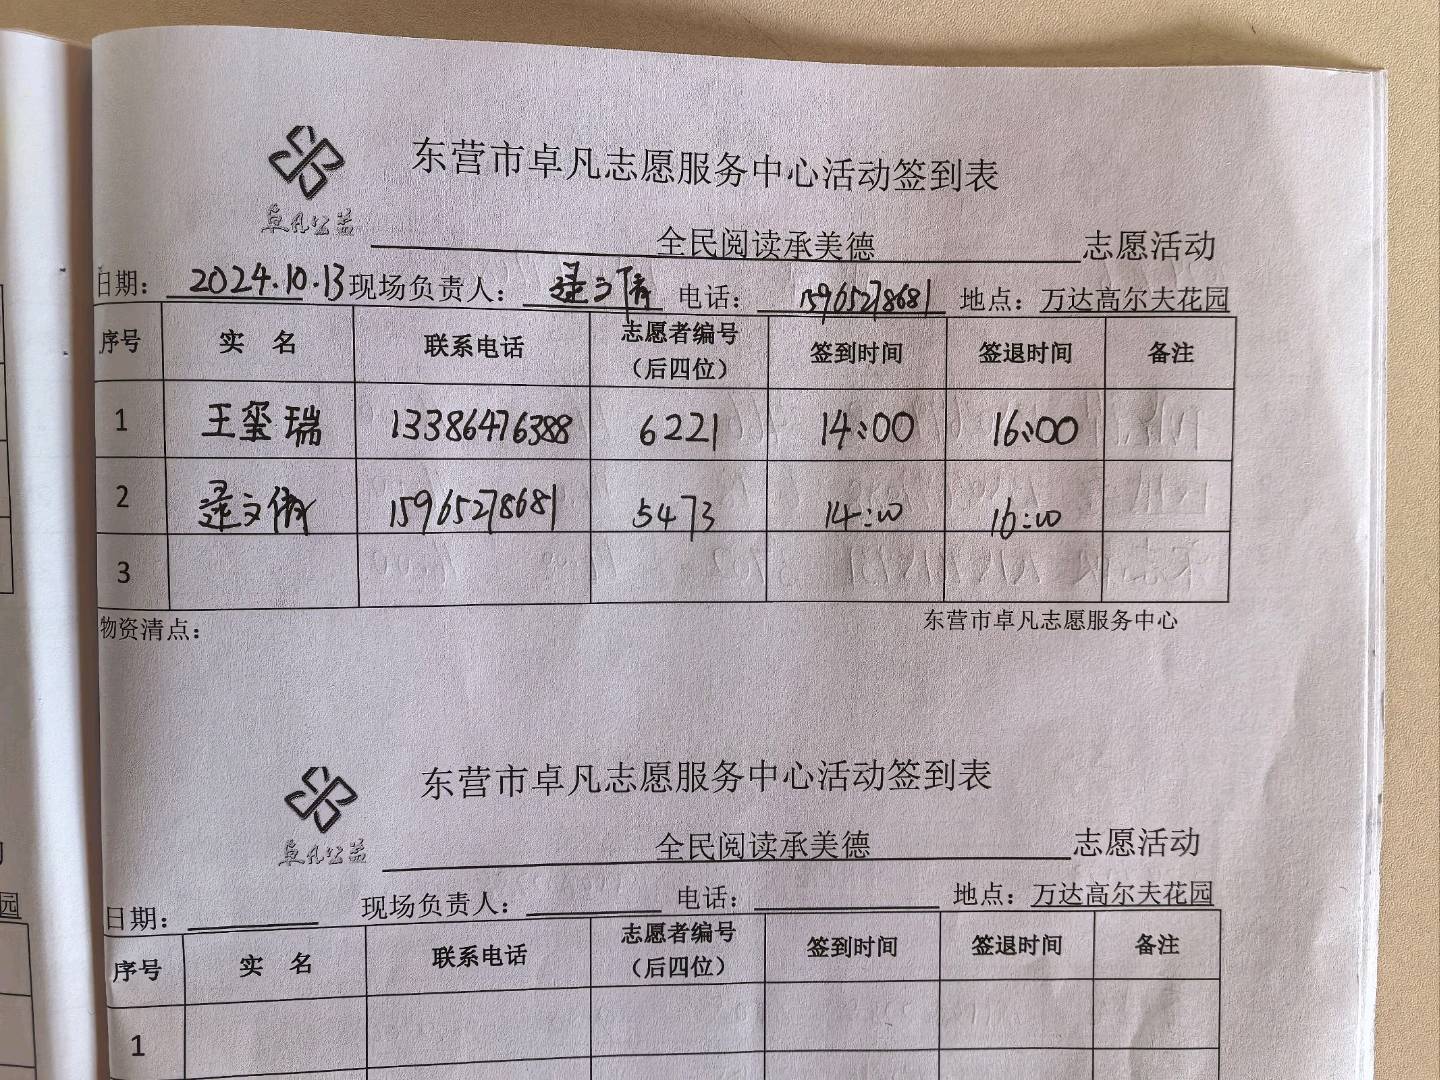 东营市卓凡志愿服务中心活动签到表
卓凡公益
全民阅读承美德 志愿活动
日期： 2024.10.13 现场负责人： 文 电话： 15965278681 地点：万达高尔夫花园
序号 实 名 联系电话 志愿者编号（后四位） 签到时间 签退时间 备注
1 王玺瑞 13386476388 6221 14:00 16:00
2 文 15965278681 5473 14:00 16:00
3
物资清点： 东营市卓凡志愿服务中心
东营市卓凡志愿服务中心活动签到表
卓凡公益
全民阅读承美德 志愿活动
日期： 现场负责人： 电话： 地点：万达高尔夫花园
序号 实 名 联系电话 志愿者编号（后四位） 签到时间 签退时间 备注
1
园